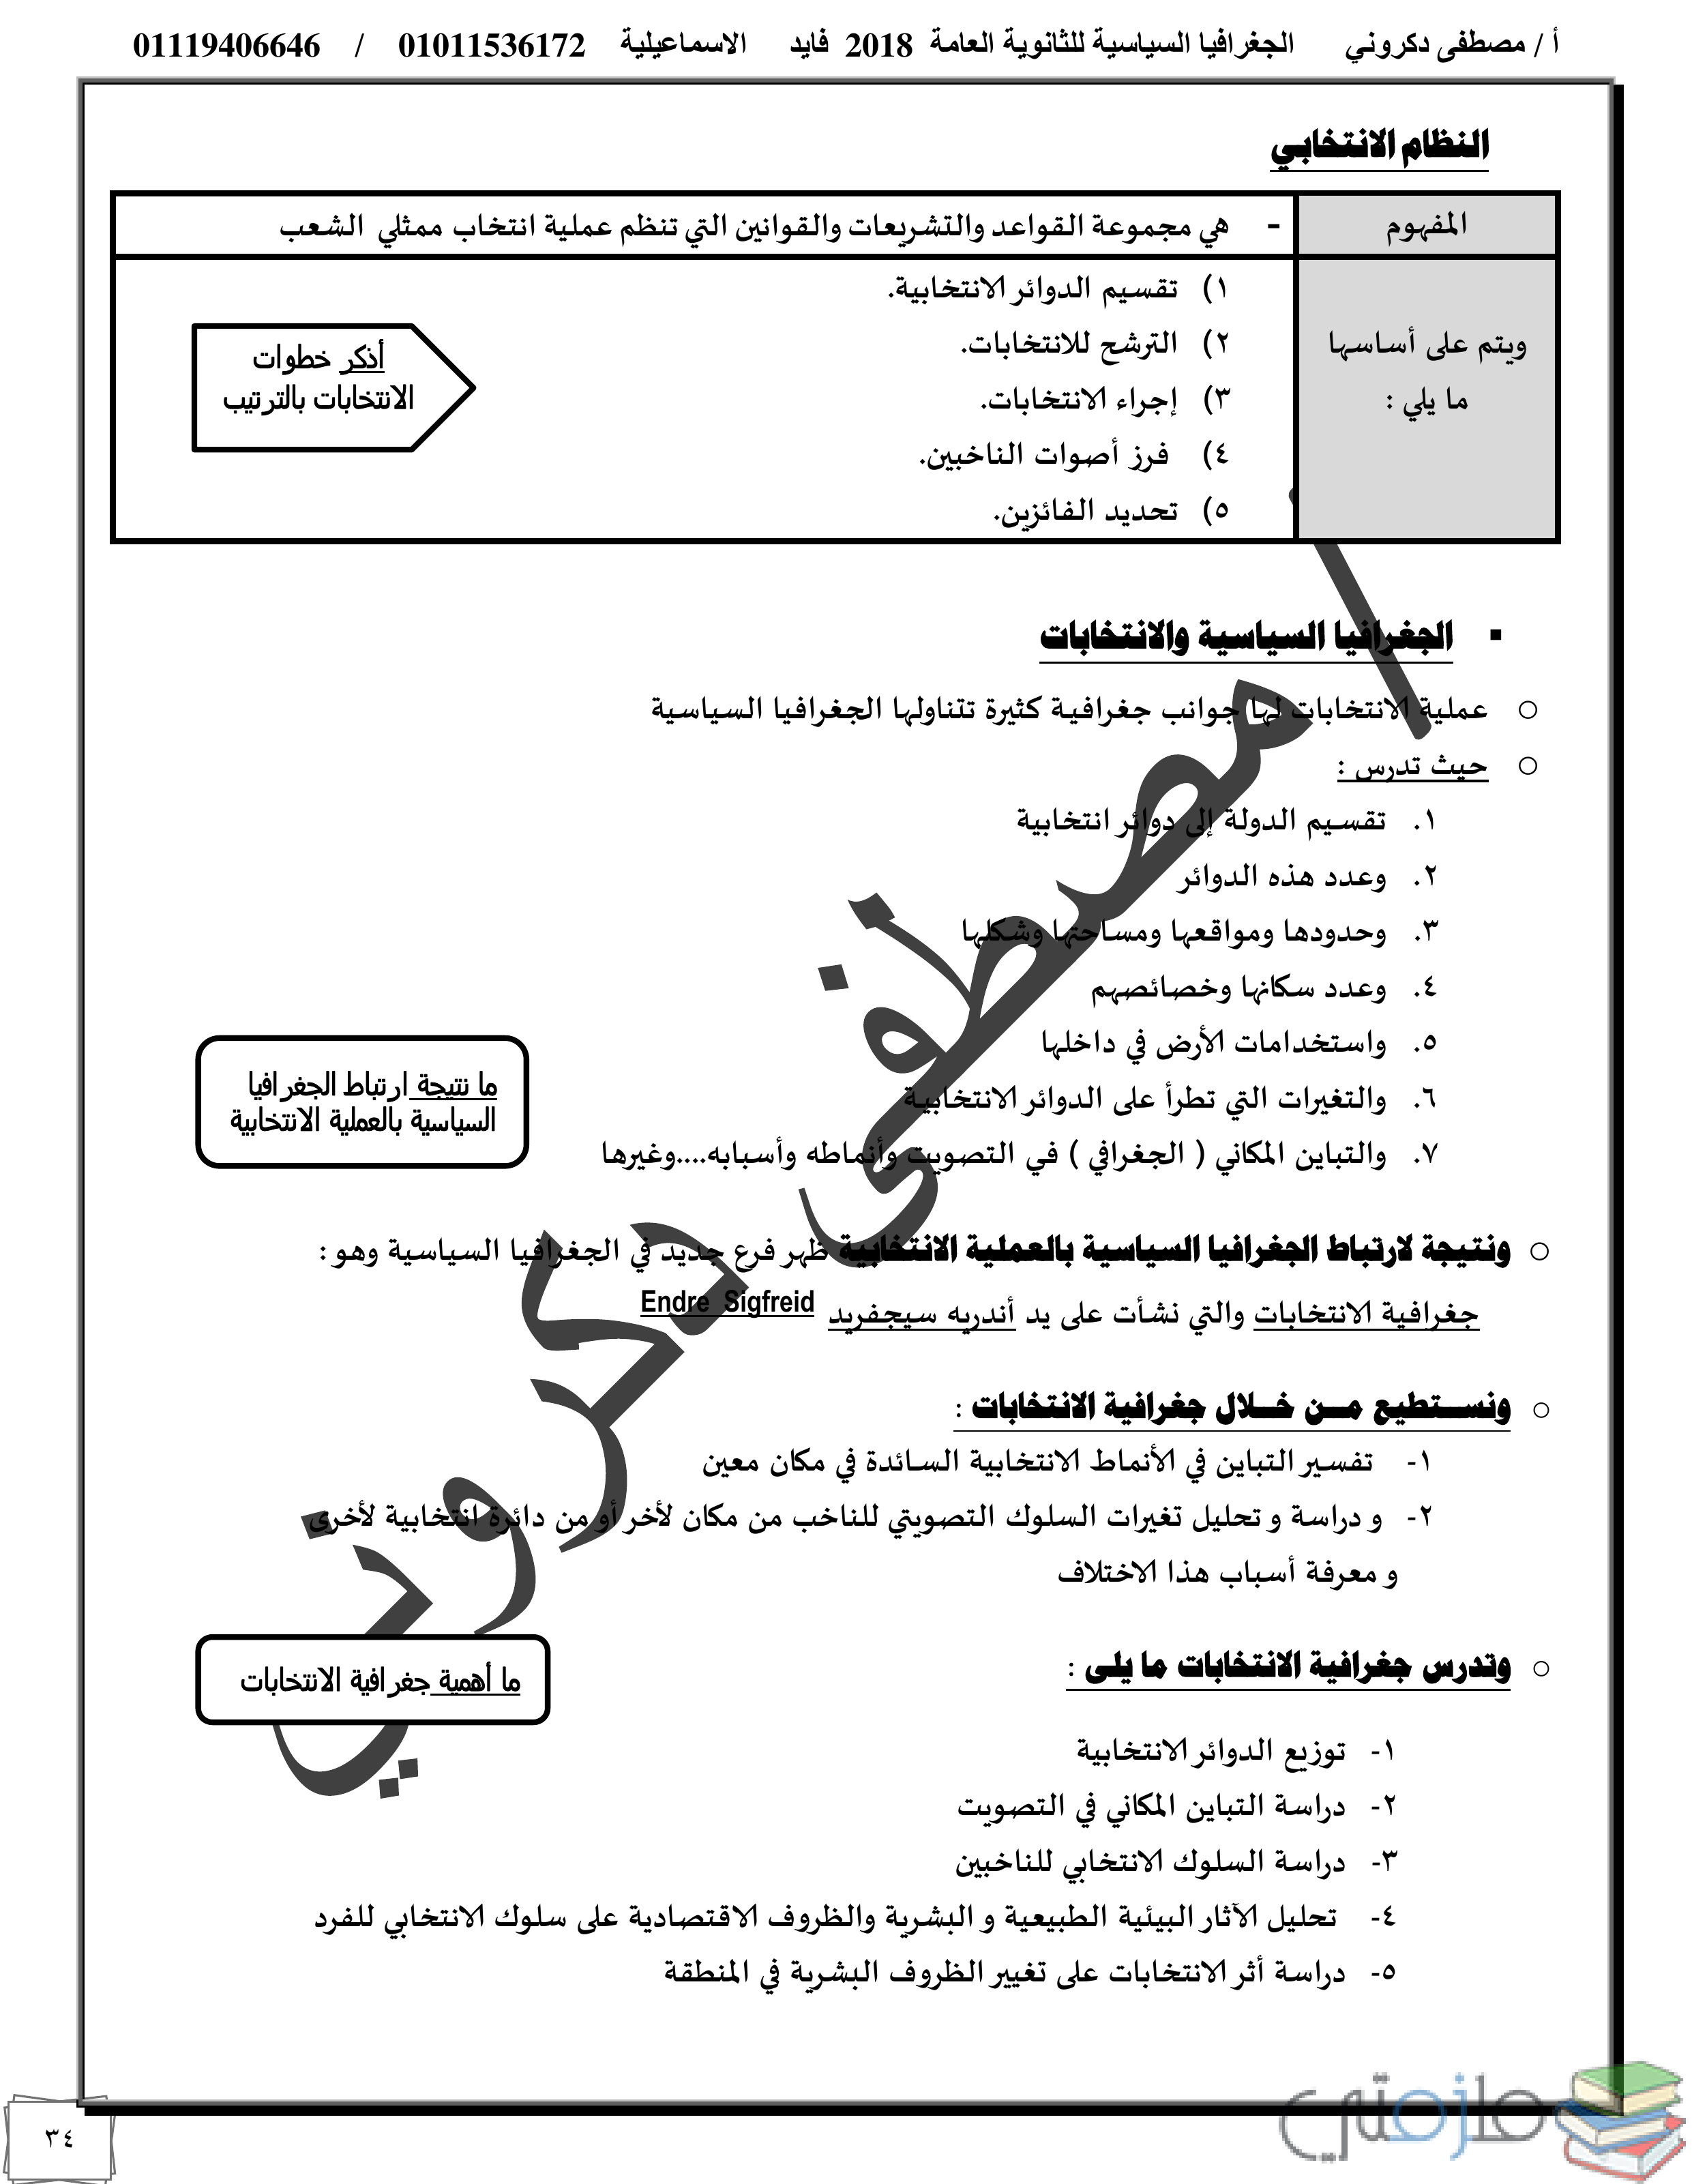 أ / مصطفى دكروني الجغرافيا السياسية للثانوية العامة 2018 فايد الاسماعيلية 01011536172 / 01119406646
النظام الانتخابي
المفهوم - هي مجموعة القواعد والتشريعات والقوانين التي تنظم عملية انتخاب ممثلي الشعب
ويتم على أساسها
ما يلي :
١) تقسيم الدوائر الانتخابية.
٢) الترشح للانتخابات.
٣) إجراء الانتخابات.
٤) فرز أصوات الناخبين.
٥) تحديد الفائزين.
أذكر خطوات
الانتخابات بالترتيب
▪ الجغرافيا السياسية والانتخابات
○ عملية الانتخابات لها جوانب جغرافية كثيرة تتناولها الجغرافيا السياسية
○ حيث تدرس :
١. تقسيم الدولة إلى دوائر انتخابية
٢. وعدد هذه الدوائر
٣. وحدودها ومواقعها ومساحتها وشكلها
٤. وعدد سكانها وخصائصهم
٥. واستخدامات الأرض في داخلها
٦. والتغيرات التي تطرأ على الدوائر الانتخابية
٧. والتباين المكاني ( الجغرافي ) في التصويت وأنماطه وأسبابه....وغيرها
ما نتيجة ارتباط الجغرافيا
السياسية بالعملية الانتخابية
○ ونتيجة لارتباط الجغرافيا السياسية بالعملية الانتخابية ظهر فرع جديد في الجغرافيا السياسية وهو :
جغرافية الانتخابات والتي نشأت على يد أندريه سيجفريد Endre Sigfreid
○ ونستطيع من خلال جغرافية الانتخابات :
١- تفسير التباين في الأنماط الانتخابية السائدة في مكان معين
٢- و دراسة و تحليل تغيرات السلوك التصويتي للناخب من مكان لأخر أو من دائرة انتخابية لأخرى
و معرفة أسباب هذا الاختلاف
○ وتدرس جغرافية الانتخابات ما يلى :
ما أهمية جغرافية الانتخابات
١- توزيع الدوائر الانتخابية
٢- دراسة التباين المكاني في التصويت
٣- دراسة السلوك الانتخابي للناخبين
٤- تحليل الآثار البيئية الطبيعية و البشرية والظروف الاقتصادية على سلوك الانتخابي للفرد
٥- دراسة أثر الانتخابات على تغيير الظروف البشرية في المنطقة
أ / مصطفى دكروني
ملزمتي
٣٤